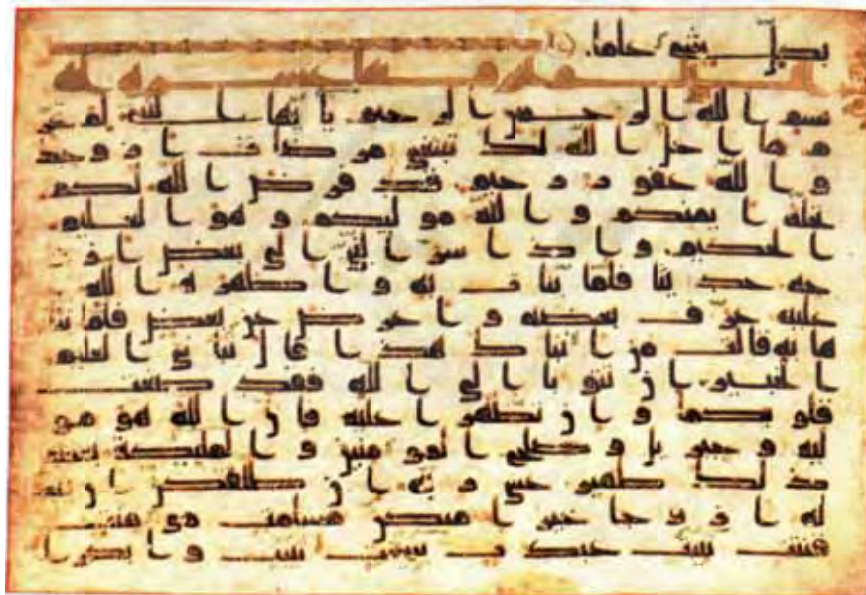 بكل شىء علما
عشره ايه
بسم الله الرحمن الرحيم يايها النبى لم تحر
م ما احل الله لك تبتغى مرضات ازوجك
و الله غفور رحيم قد فرض الله لكم
تحلة ايمنكم و الله موليكم و هو العليم
الحكيم و اذ اسر النبى الى بعض ازو
جه حديثا فلما نبات به و اظهره الله
عليه عرف بعضه و اعرض عن بعض فلما نبا
ها به قالت من انباك هذا قال نبانى العليم
الخبير ان تتوبا الى الله فقد صغت
قلوبكما و ان تظهرا عليه فان الله هو مو
ليه و جبريل و صلح المومنين و الملئكة بعد
ذلك ظهير عسى ربه ان طلقكن ان يبد
له ازوجا خيرا منكن مسلمت مومنت
قنتت تئبت عبدت سئحت ثيبت و ابكارا